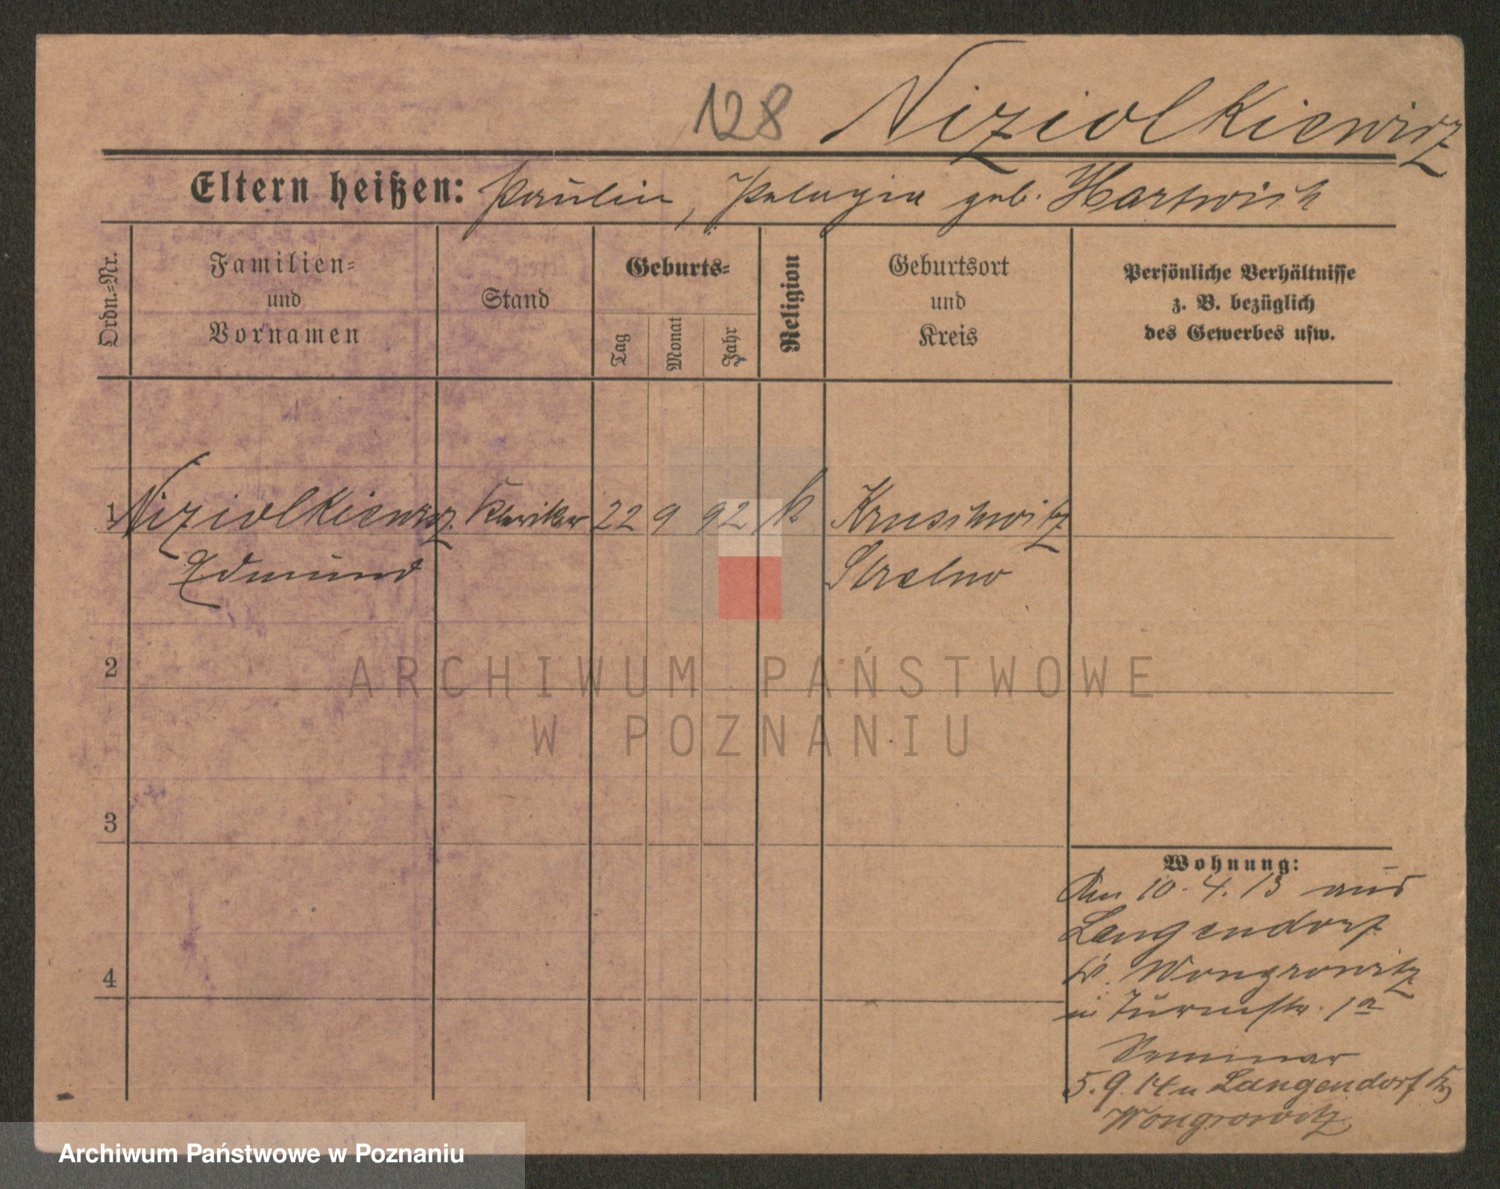 128 Niziolkiewicz
Eltern heißen: Paulin, Pelagia geb. Hartwich
Ordn.-Nr.
Familien-
und
Vornamen
Stand
Geburts-
Tag
Monat
Jahr
Religion
Geburtsort
und
Kreis
Persönliche Verhältnisse
z. B. bezüglich
des Gewerbes usw.
1 Niziolkiewicz Kleriker 22 9 92 k Kruschwitz
Edmund Strelno
2
ARCHIWUM PAŃSTWOWE
W POZNANIU
3
Wohnung:
Am 10.4.13 aus
Langendorf
Kr. Wongrowitz
in Turmstr. 1a
Seminar
4
5.9.14 n Langendorf Krs
Wongrowitz
Archiwum Państwowe w Poznaniu